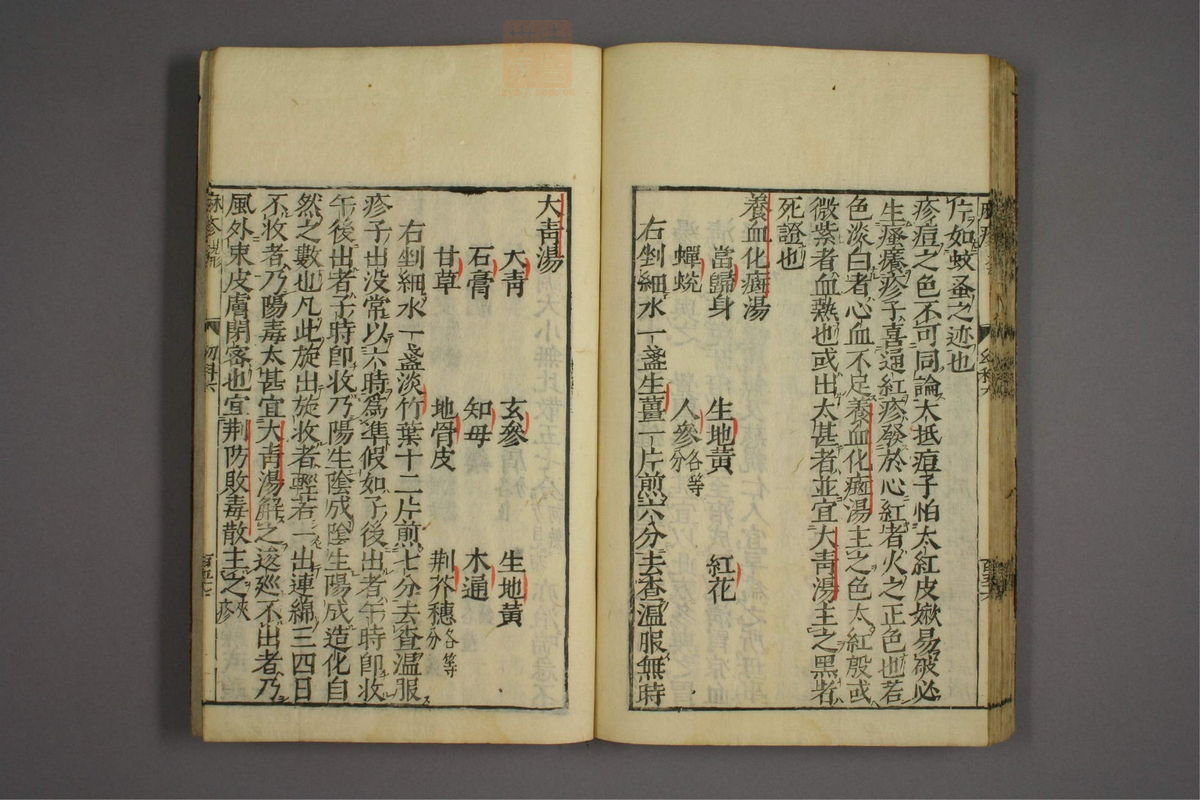 片如蚊蚤之迹也
疹痘之色不可同論大抵痘子怕太紅皮嫩易破必
生瘙癢疹子喜通紅疹發於心紅者火之正色也若
色淡白者心血不足養血化癍湯主之色太紅殷或
微紫者血熱也或出太甚者並宜大青湯主之黑者
死證也
養血化癍湯
當歸身 生地黃 紅花
蟬蛻 人參各等分
右剉細水一盞生薑一片煎六分去查溫服無時
大青湯
大青 玄參 生地黃
石膏 知母 木通
甘草 地骨皮 荆芥穗各等分
右剉細水一盞淡竹葉十二片煎七分去查溫服
疹子出没常以六時為準假如子後出者午時卽收
午後出者子時卽收乃陽生陰成陰生陽成造化自
然之數也凡此旋出旋收者輕若一出連綿三四日
不收者乃陽毒太甚宜大青湯解之逡巡不出者乃
風外束皮膚閉密也宜荆防敗毒散主之